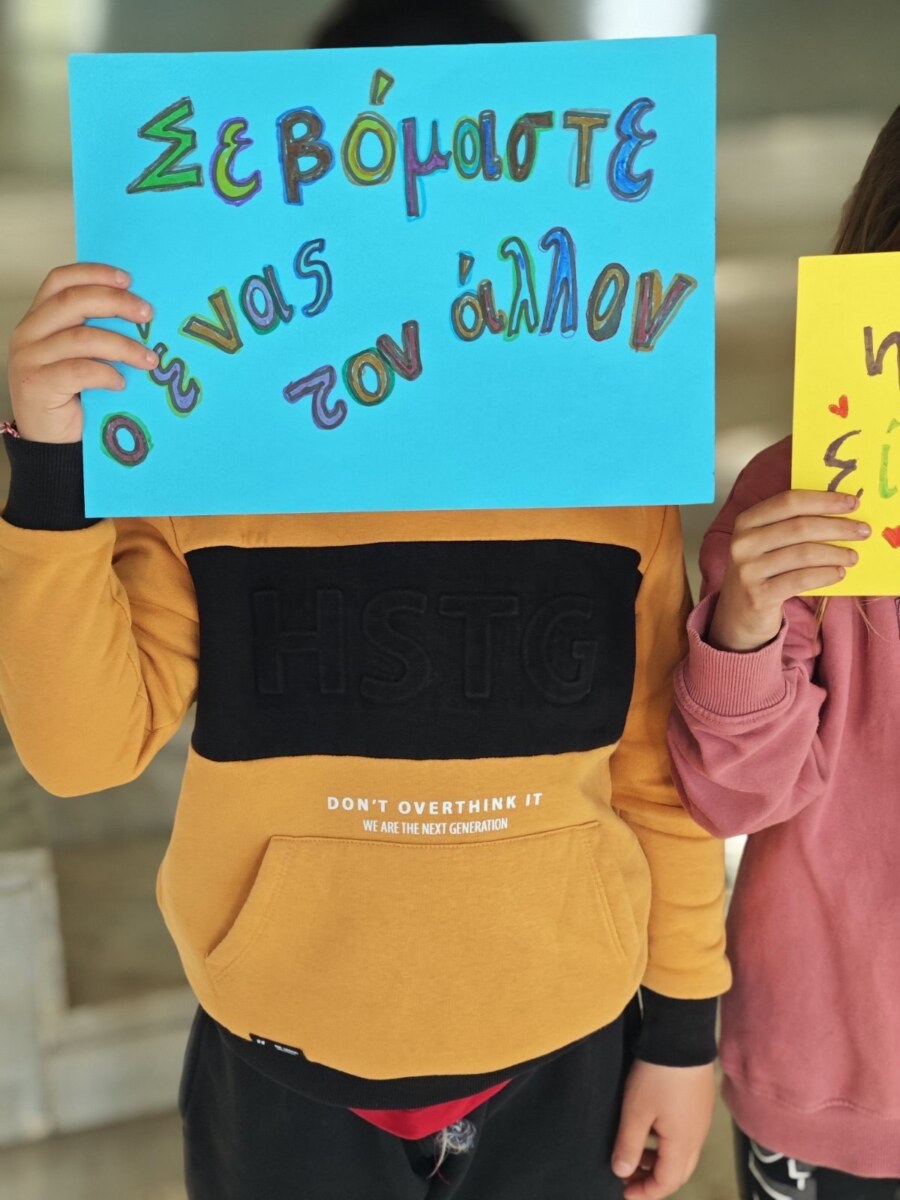 Σεβόμαστε
ο ένας
τον άλλον
HSTG
DON'T OVERTHINK IT
WE ARE THE NEXT GENERATION